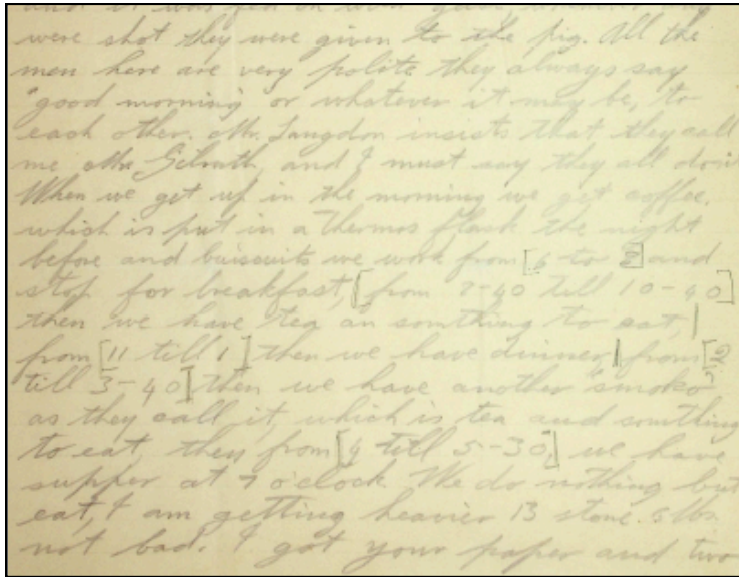 were shot they were given to the pig. All the
men here are very polite they always say
"good morning" or whatever it may be, to
each other. Mr. Langdon insists that they call
me Mr and I must say they all do it
When we get up in the morning we get coffee,
which is put in a Thermos flask the night
before and buiscuits we work from [6 to 8] and
stop for breakfast, [from 8-40 till 10-40]
then we have tea an somthing to eat,
from [11 till 1] then we have dinner from [2
till 3-40] then we have another "smoko"
as they call it, which is tea and somthing
to eat, they from [4 till 5-30] we have
supper at 7 o'clock We do nothing but
eat, I am getting heavier 13 stone. 5 lbs.
not bad. I got your paper and two